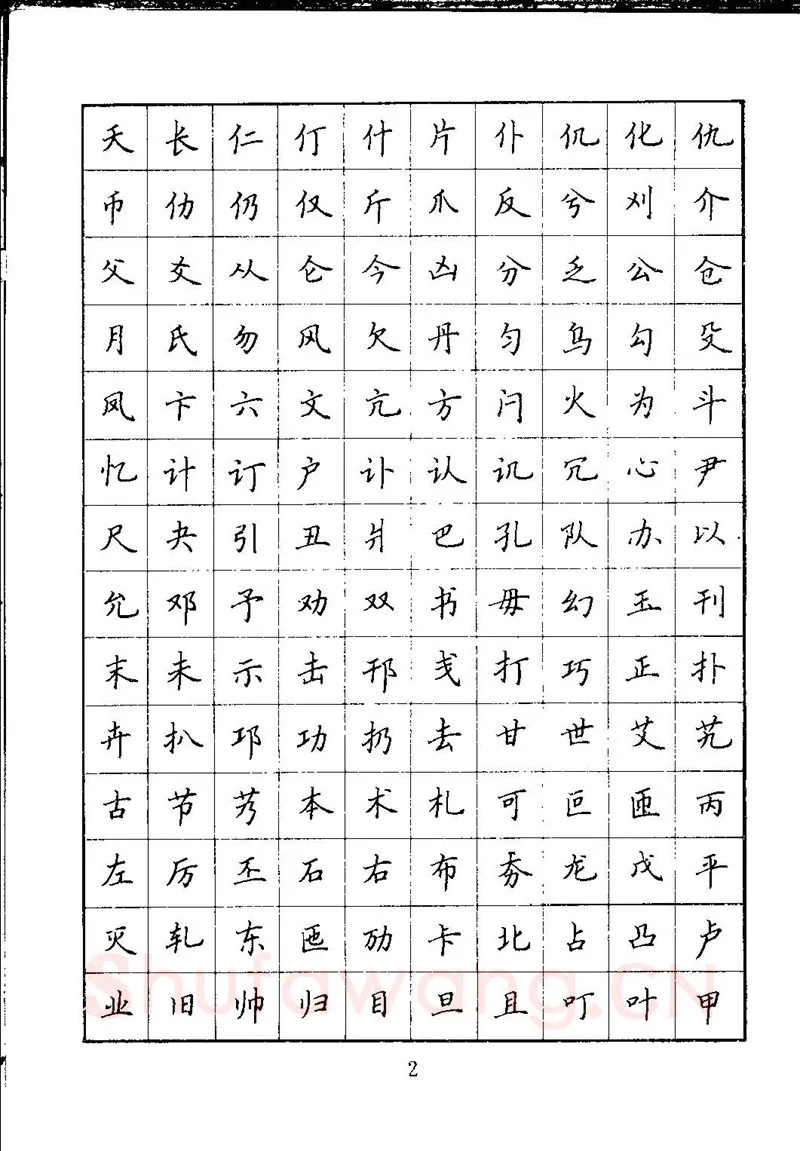 夭长仁仃什片仆仉化仇
币仂仍仅斤爪反兮刈介
父爻从仑今凶分乏公仓
月氏勿风欠丹匀乌勾殳
凤卞六文亢方闩火为斗
忆计订户讣认讥冗心尹
尺夬引丑爿巴孔队办以
允邓予劝双书毋幻玉刊
末未示击邗戋打巧正扑
卉扒邛功扔去甘世艾艽
古节艿本术札可叵匝丙
左厉丕石右布夯龙戊平
灭轧东匜劢卡北占凸卢
业旧帅归目旦且叮叶甲
Shufawang.CN
2